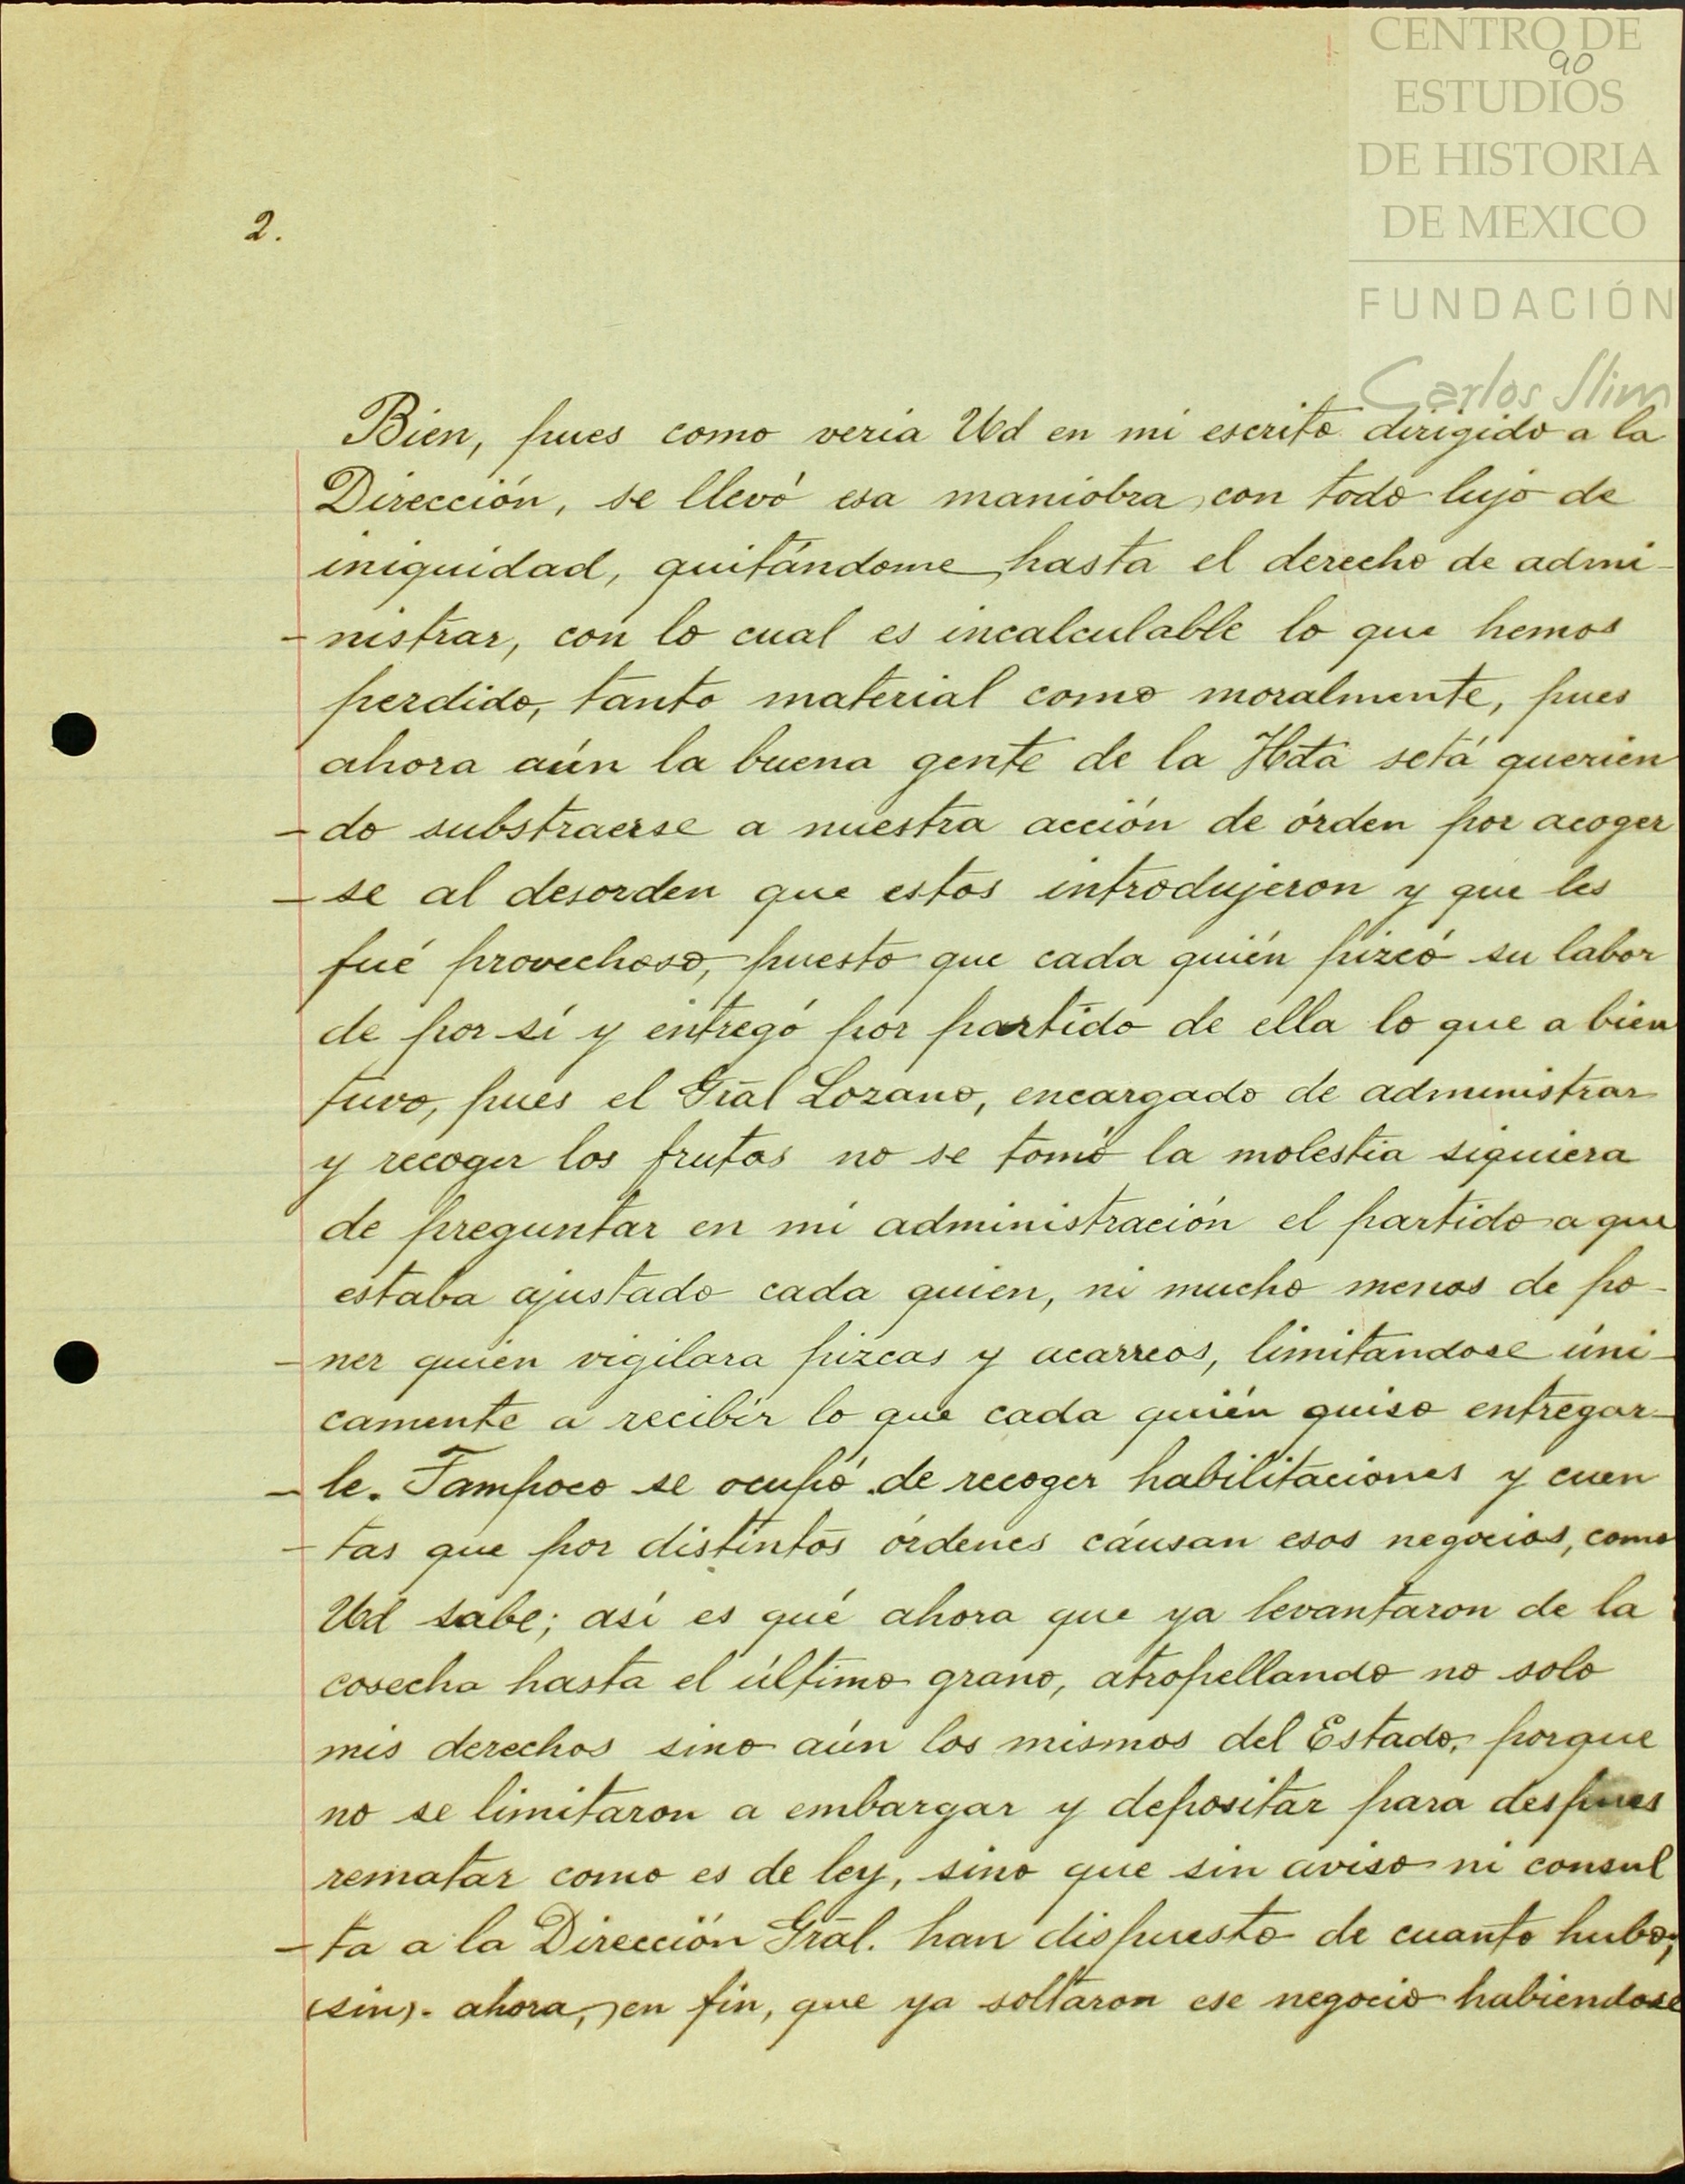 CENTRO DE
90
ESTUDIOS
DE HISTORIA
DE MEXICO
FUNDACIÓN
Carlos Slim
2.
Bien, pues como veria Ud en mi escrito dirigido a la
Dirección, se llevó esa maniobra, con todo lujo de
iniquidad, quitándome, hasta el derecho de admi-
-nistrar, con lo cual es incalculable lo que hemos
perdido, tanto material como moralmente, pues
ahora aún la buena gente de la Hda setá querien
-do substraerse a nuestra acción de órden por acoger
-se al desorden que estos introdujeron y que les
fué provechoso, puesto que cada quién pizcó su labor
de por sí y entregó por partido de ella lo que a bien
tuvo, pues el Gral Lozano, encargado de administrar
y recoger los frutos no se tomó la molestia siquiera
de preguntar en mi administración el partido a que
estaba ajustado cada quien, ni mucho menos de po-
-ner quien vigilara pizcas y acarreos, limitandose úni-
camente a recibir lo que cada quién quiso entregar-
-le. Tampoco se ocupó de recoger habilitaciones y cuen
-tas que por distintos órdenes cáusan esos negocios, como
Ud sabe; así es qué ahora que ya levantaron de la
cosecha hasta el último grano, atropellando no solo
mis derechos sino aún los mismos del Estado, porque
no se limitaron a embargar y depositar para despues
rematar como es de ley, sino que sin aviso ni consul
-ta a la Dirección Gral. han dispuesto de cuanto hubo;
(sin). ahora, en fin, que ya soltaron ese negocio habiendose